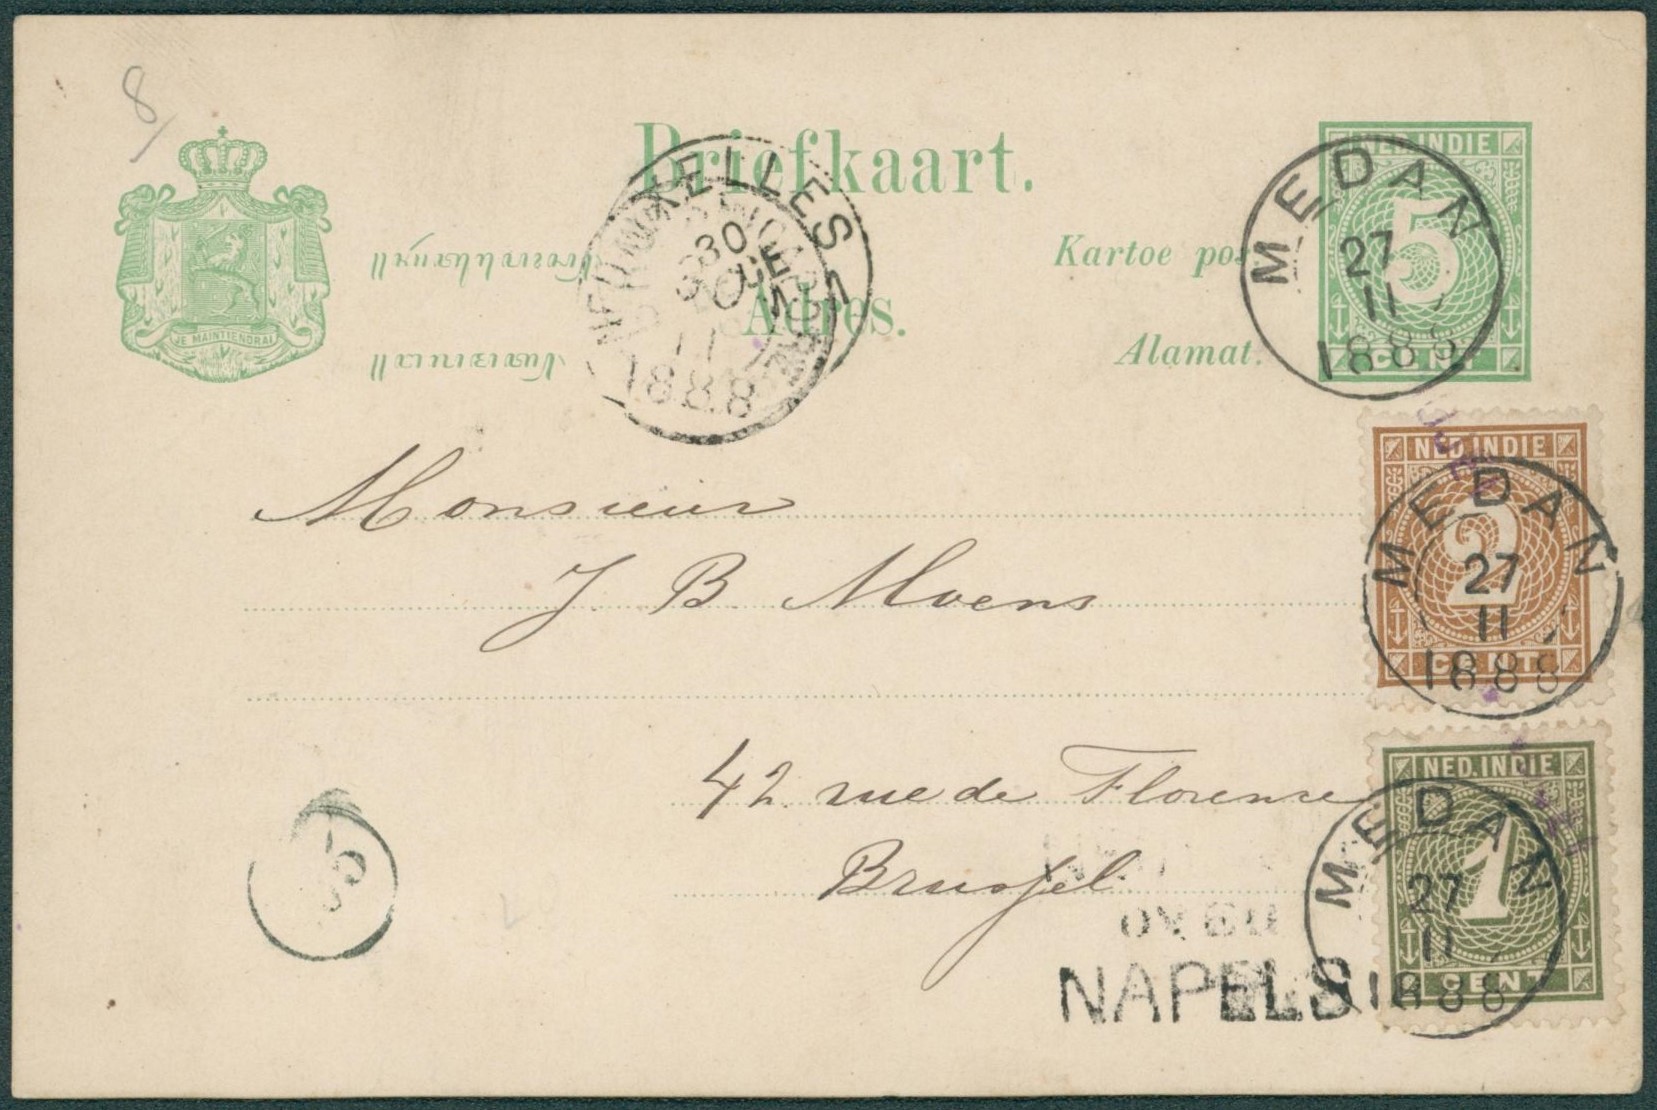 8
Briefkaart.
Kartoe pos
Adres.
Alamat.
JE MAINTIENDRAI
NED. INDIE
5
CENT
MEDAN
27
11
1888
XELLES
30
DE
1888
Monsieur
J B Moens
42 rue de Florence
Brussel
NED. INDIE
2
CENT
MEDAN
27
11
1888
NED. INDIE
1
CENT
MEDAN
27
11
1888
NAPELS